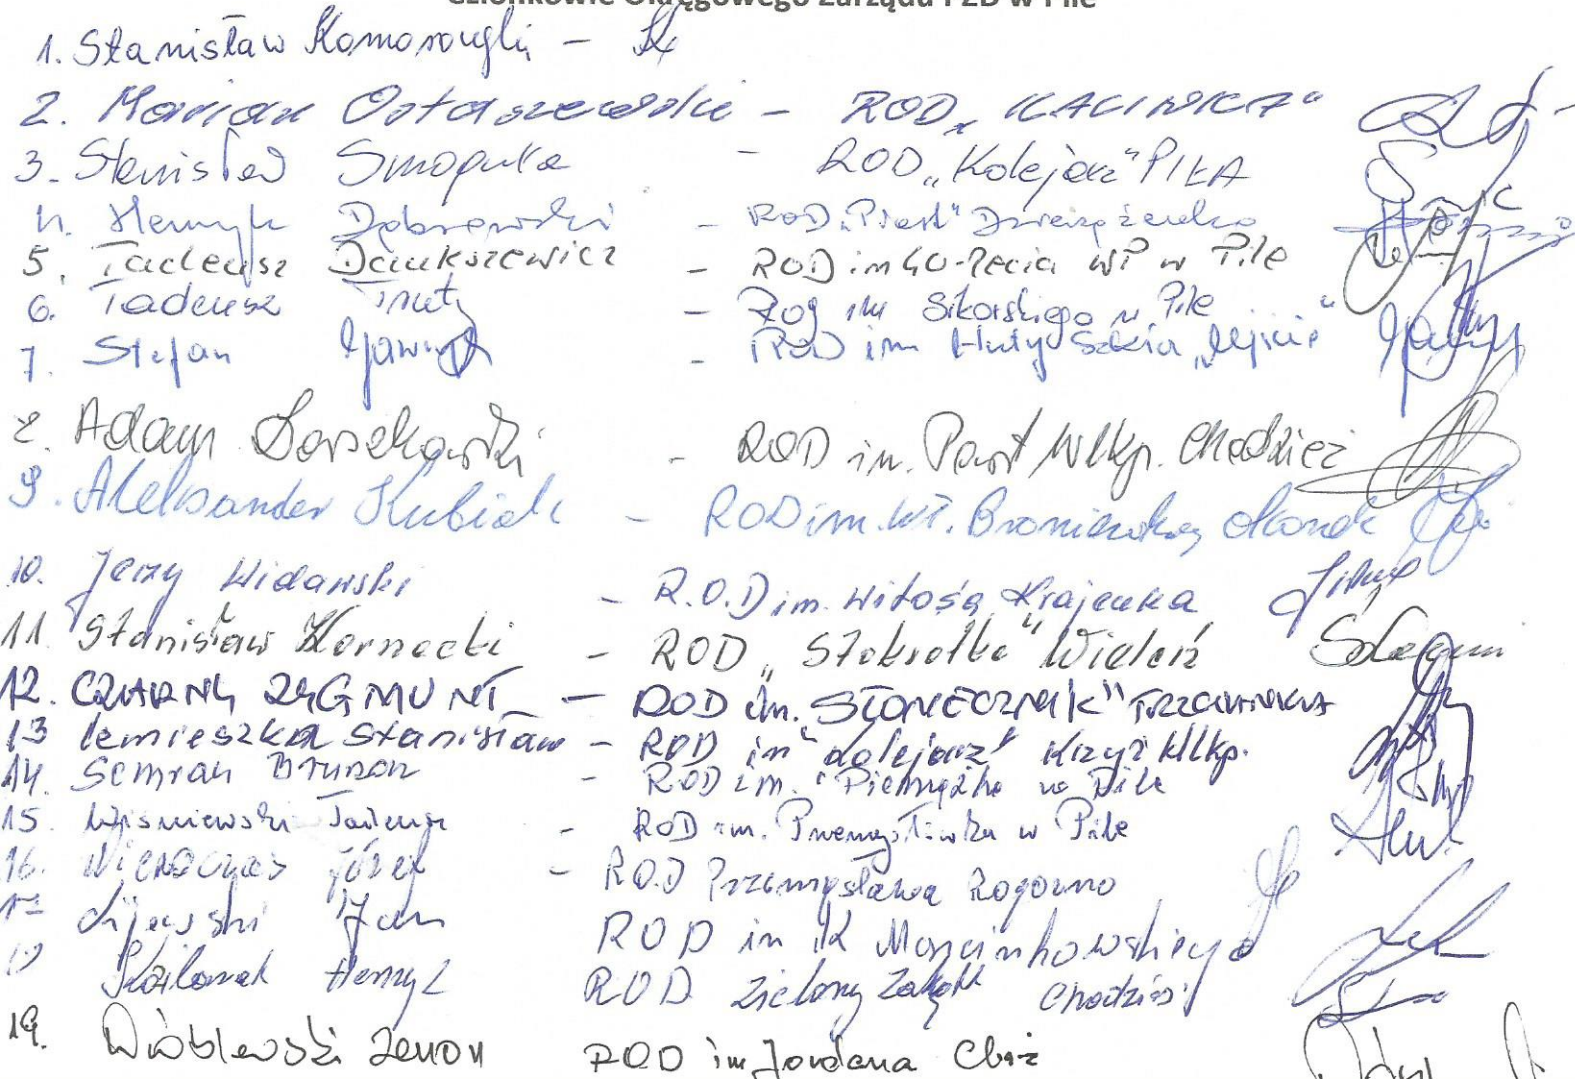 Członkowie Okręgowego Zarządu PZD w Pile
1. Stanisław
2. Marian Ostaszewski - ROD „KALINKA"
3. Stanisław Smoguła - ROD „Kolejarz" PIŁA
4. Henryk Dąbrowski - ROD „Piast"
5. Tadeusz Daukszewicz - ROD im 40-lecia WP w Pile
6. Tadeusz - ROD im Sikorskiego w Pile
7. Stefan - ROD im Huty Szkła „Ujście"
8. Adam - ROD im. Powst Wlkp. Chodzież
9. Aleksander Kubiak - ROD im. Wł. Broniewskiego Okonek
10. Jerzy Widawski - R.O.D im. Witosa Krajenka
11. Stanisław Kornacki - ROD „Stokrotka" Wieleń
12. CZARNY ZYGMUNT - ROD im. SŁONECZNIK" TRZCIANKA
13 Lemieszka Stanisław - ROD im „Kolejarz" Krzyż Wlkp.
14. Semrau Brunon - ROD im. w Pile
15. Wiśniewski Tadeusz - ROD im. w Pile
16. Józef - R.O.D Przemysława Rogoźno
17 Jan ROD im K Marcinkowskiego
18 Henryk ROD Zielony Zakątek Chodzież
19. Wróblewski Zenon ROD im Jordana